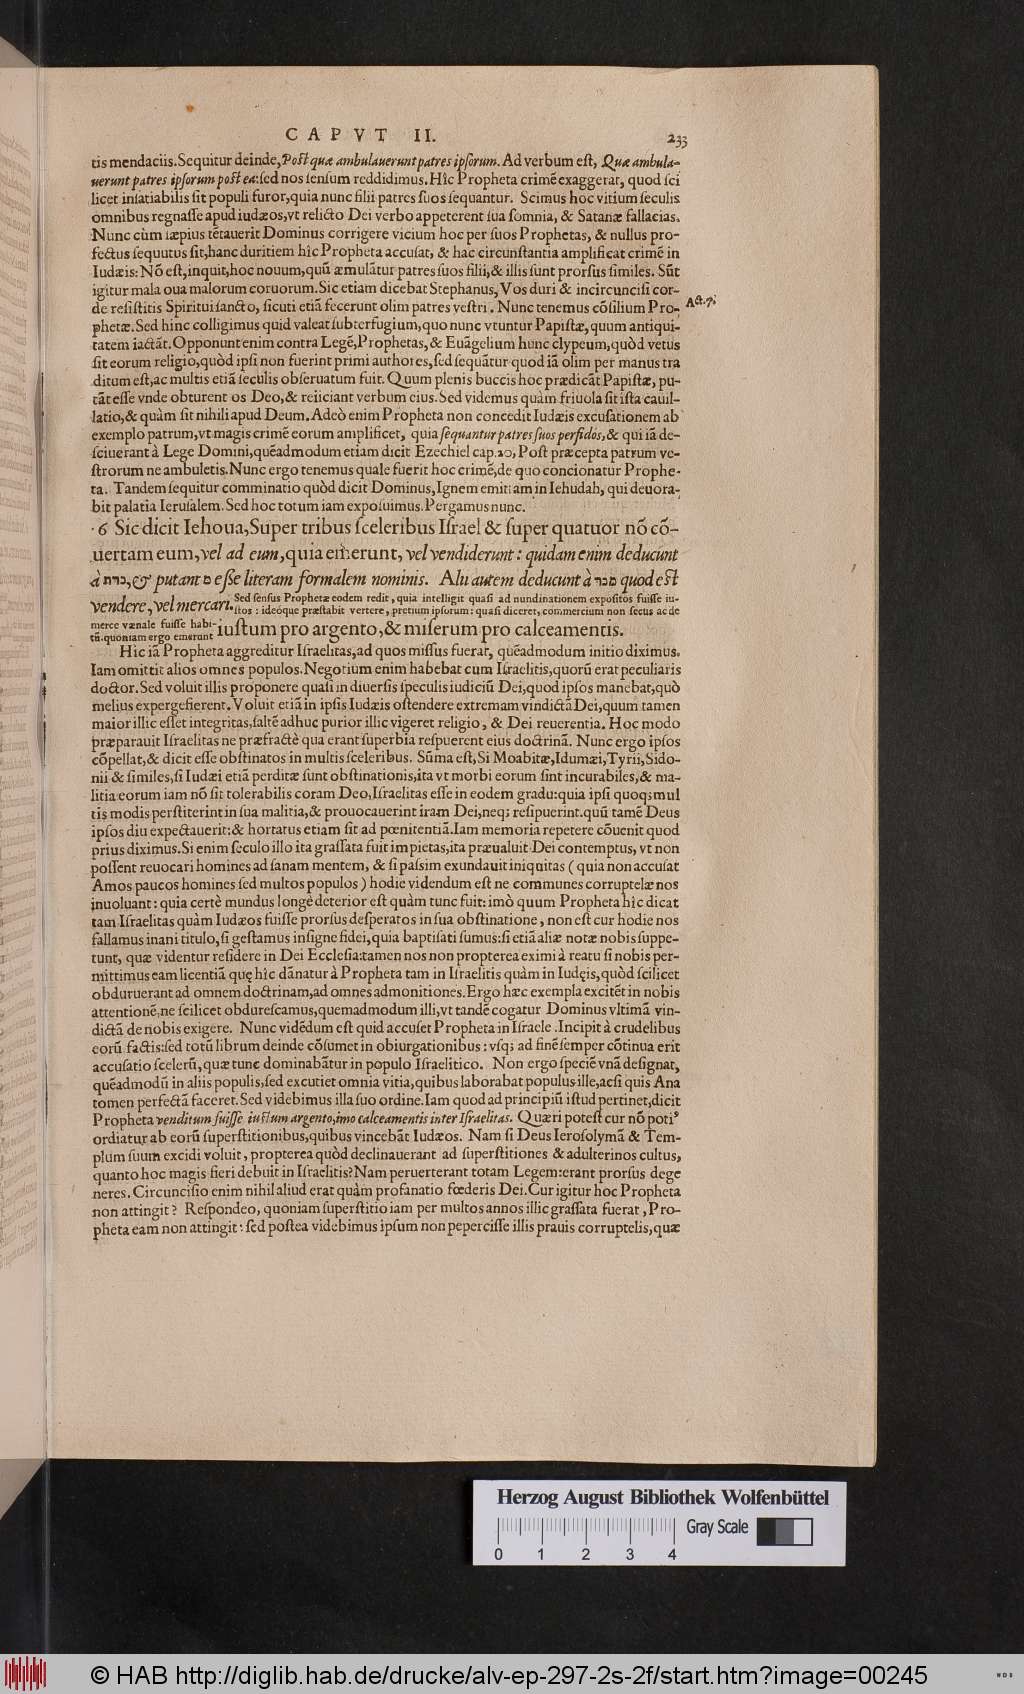 CAPVT II. 233
tis mendaciis. Sequitur deinde, Post quæ ambulauerunt patres ipsorum. Ad verbum est, Quæ ambula-
uerunt patres ipsorum post ea: sed nos sensum reddidimus. Hîc Propheta crimẽ exaggerat, quod sci
licet insatiabilis sit populi furor, quia nunc filii patres suos sequantur. Scimus hoc vitium seculis
omnibus regnasse apud iudæos, vt relicto Dei verbo appeterent sua somnia, & Satanæ fallacias.
Nunc cùm sæpius tẽtauerit Dominus corrigere vicium hoc per suos Prophetas, & nullus pro-
fectus sequutus sit, hanc duritiem hîc Propheta accusat, & hac circunstantia amplificat crimẽ in
Iudæis: Nõ est, inquit, hoc nouum, quũ æmulãtur patres suos filii, & illis sunt prorsus similes. Sũt
igitur mala oua malorum coruorum. Sic etiam dicebat Stephanus, Vos duri & incircuncisi cor-
de resistitis Spiritui sancto, sicuti etiã fecerunt olim patres vestri. Nunc tenemus cõsilium Pro- Act. 7.
phetæ. Sed hinc colligimus quid valeat subterfugium, quo nunc vtuntur Papistæ, quum antiqui-
tatem iactãt. Opponunt enim contra Legẽ, Prophetas, & Euãgelium hunc clypeum, quòd vetus
sit eorum religio, quòd ipsi non fuerint primi authores, sed sequãtur quod iã olim per manus tra
ditum est, ac multis etiã seculis obseruatum fuit. Quum plenis buccis hoc prædicãt Papistæ, pu-
tãt esse vnde obturent os Deo, & reiiciant verbum eius. Sed videmus quàm friuola sit ista cauil-
latio, & quàm sit nihili apud Deum. Adeò enim Propheta non concedit Iudæis excusationem ab
exemplo patrum, vt magis crimẽ eorum amplificet, quia sequantur patres suos perfidos, & qui iã de-
sciuerant à Lege Domini, quẽadmodum etiam dicit Ezechiel cap. 20, Post præcepta patrum ve-
strorum ne ambuletis. Nunc ergo tenemus quale fuerit hoc crimẽ, de quo concionatur Prophe-
ta. Tandem sequitur comminatio quòd dicit Dominus, Ignem emittam in Iehudah, qui deuora-
bit palatia Ierusalem. Sed hoc totum iam exposuimus. Pergamus nunc.
6 Sic dicit Iehoua, Super tribus sceleribus Israel & super quatuor nõ cõ-
uertam eum, vel ad eum, quia emerunt, vel vendiderunt: quidam enim deducunt
à כרה, & putant מ esse literam formalem nominis. Alii autem deducunt à מכר quod est
vendere, vel mercari. Sed sensus Prophetæ eodem redit, quia intelligit quasi ad nundinationem expositos fuisse iu-
stos: ideóque præstabit vertere, pretium ipsorum: quasi diceret, commercium non secus ac de
merce vænale fuisse habi-
tũ. quoniam ergo emerunt iustum pro argento, & miserum pro calceamentis.
Hic iã Propheta aggreditur Israelitas, ad quos missus fuerat, quẽadmodum initio diximus.
Iam omittit alios omnes populos. Negotium enim habebat cum Israelitis, quorũ erat peculiaris
doctor. Sed voluit illis proponere quasi in diuersis speculis iudiciũ Dei, quod ipsos manebat, quò
melius expergefierent. Voluit etiã in ipsis Iudæis ostendere extremam vindictã Dei, quum tamen
maior illic esset integritas, saltẽ adhuc purior illic vigeret religio, & Dei reuerentia. Hoc modo
præparauit Israelitas ne præfractè qua erant superbia respuerent eius doctrinã. Nunc ergo ipsos
cõpellat, & dicit esse obstinatos in multis sceleribus. Sũma est, Si Moabitæ, Idumæi, Tyrii, Sido-
nii & similes, si Iudæi etiã perditæ sunt obstinationis, ita vt morbi eorum sint incurabiles, & ma-
litia eorum iam nõ sit tolerabilis coram Deo, Israelitas esse in eodem gradu: quia ipsi quoq; mul
tis modis perstiterint in sua malitia, & prouocauerint iram Dei, neq; resipuerint. quũ tamẽ Deus
ipsos diu expectauerit: & hortatus etiam sit ad pœnitentiã. Iam memoria repetere cõuenit quod
prius diximus. Si enim seculo illo ita grassata fuit impietas, ita præualuit Dei contemptus, vt non
possent reuocari homines ad sanam mentem, & si passim exundauit iniquitas (quia non accusat
Amos paucos homines sed multos populos) hodie videndum est ne communes corruptelæ nos
inuoluant: quia certè mundus longè deterior est quàm tunc fuit: imò quum Propheta hîc dicat
tam Israelitas quàm Iudæos fuisse prorsus desperatos in sua obstinatione, non est cur hodie nos
fallamus inani titulo, si gestamus insigne fidei, quia baptisati sumus: si etiã aliæ notæ nobis suppe-
tunt, quæ videntur residere in Dei Ecclesia: tamen nos non propterea eximi à reatu si nobis per-
mittimus eam licentiã quę hîc dãnatur à Propheta tam in Israelitis quàm in Iudęis, quòd scilicet
obduruerant ad omnem doctrinam, ad omnes admonitiones. Ergo hæc exempla excitẽt in nobis
attentionẽ, ne scilicet obdurescamus, quemadmodum illi, vt tandẽ cogatur Dominus vltimã vin-
dictã de nobis exigere. Nunc vidẽdum est quid accuset Propheta in Israele. Incipit à crudelibus
eorũ factis: sed totũ librum deinde cõsumet in obiurgationibus: vsq; ad finẽ semper cõtinua erit
accusatio scelerũ, quæ tunc dominabãtur in populo Israelitico. Non ergo speciẽ vnã designat,
quẽadmodũ in aliis populis, sed excutiet omnia vitia, quibus laborabat populus ille, acsi quis Ana
tomen perfectã faceret. Sed videbimus illa suo ordine. Iam quod ad principiũ istud pertinet, dicit
Propheta venditum fuisse iustum argento, imo calceamentis inter Israelitas. Quæri potest cur nõ poti⁹
ordiatur ab eorũ superstitionibus, quibus vincebãt Iudæos. Nam si Deus Ierosolymã & Tem-
plum suum excidi voluit, propterea quòd declinauerant ad superstitiones & adulterinos cultus,
quanto hoc magis fieri debuit in Israelitis? Nam peruerterant totam Legem: erant prorsus dege
neres. Circuncisio enim nihil aliud erat quàm profanatio fœderis Dei. Cur igitur hoc Propheta
non attingit? Respondeo, quoniam superstitio iam per multos annos illic grassata fuerat, Pro-
pheta eam non attingit: sed postea videbimus ipsum non pepercisse illis prauis corruptelis, quæ
Herzog August Bibliothek Wolfenbüttel
Gray Scale
0 1 2 3 4
© HAB http://diglib.hab.de/drucke/alv-ep-297-2s-2f/start.htm?image=00245